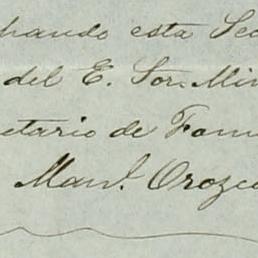 hando esta Sec
del E. Sor. Min
etario de Fom
Manl. Orozco